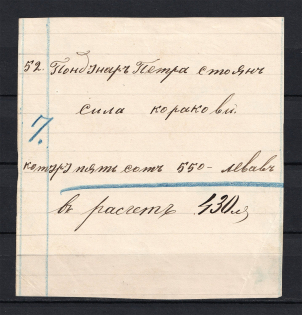 52. Понд Гнаръ Петра стоянъ
сила кораково.
7.
пять сотъ 550- левавъ
въ расчетъ 430 л